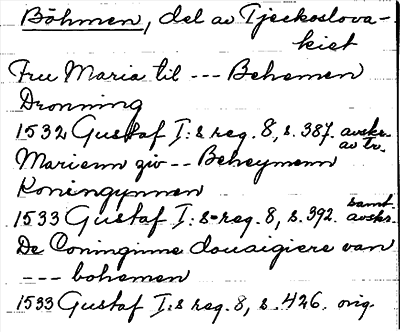 Böhmen, del av Tjeckoslova-
kiet
Fru Maria til --- Behemen
Dronning
1532 Gustaf I:s reg. 8, s. 387. avskr. av tr.
Marienn zw -- Beheymenn
Koningynnen
1533 Gustaf I:s reg. 8, s. 392. samt. avskr.
De Coninginne douaigiere van
--- bohemen
1533 Gustaf I:s reg. 8, s. 426. orig.